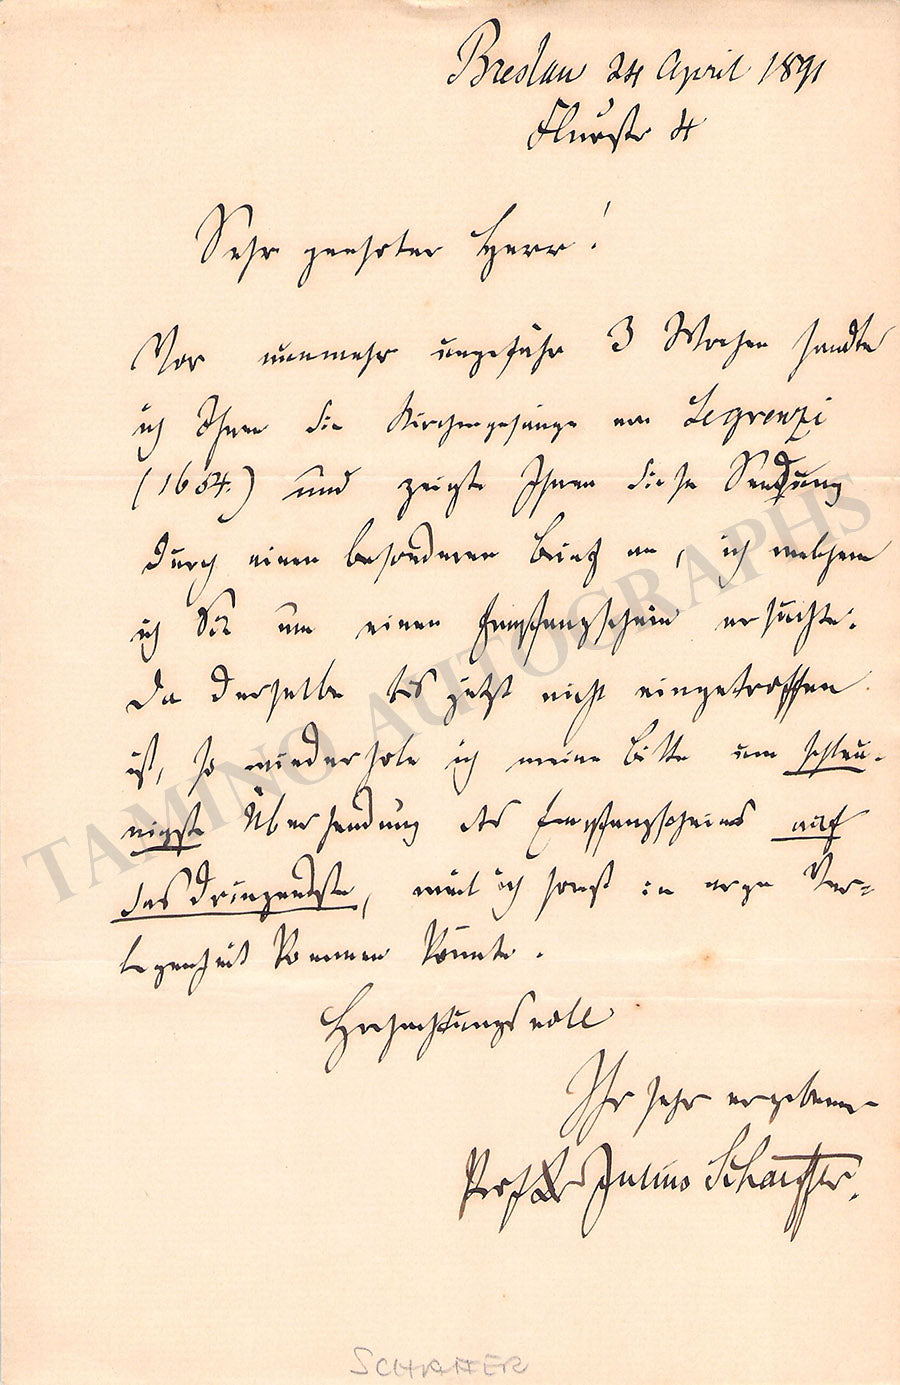 Breslau 24 April 1891
Flurstr 4
Sehr geehrter Herr!
Vor nunmehr ungefähr 3 Wochen sandte
ich Ihnen die Kirchengesänge von Legrenzi
(1654.) und zeigte Ihnen diese Sendung
durch einen besonderen Brief an, in welchem
ich Sie um einen Empfangschein ersuchte.
Da derselbe bis jetzt nicht eingetroffen
ist, so wiederhole ich meine Bitte um schleu-
nigste Übersendung des Empfangscheines auf
das dringendste, weil ich sonst in arge Ver-
legenheit kommen könnte.
Hochachtungsvoll
Ihr sehr ergebener
Prof Dr Julius Schaeffer.
SCHAFFER
TAMINO AUTOGRAPHS